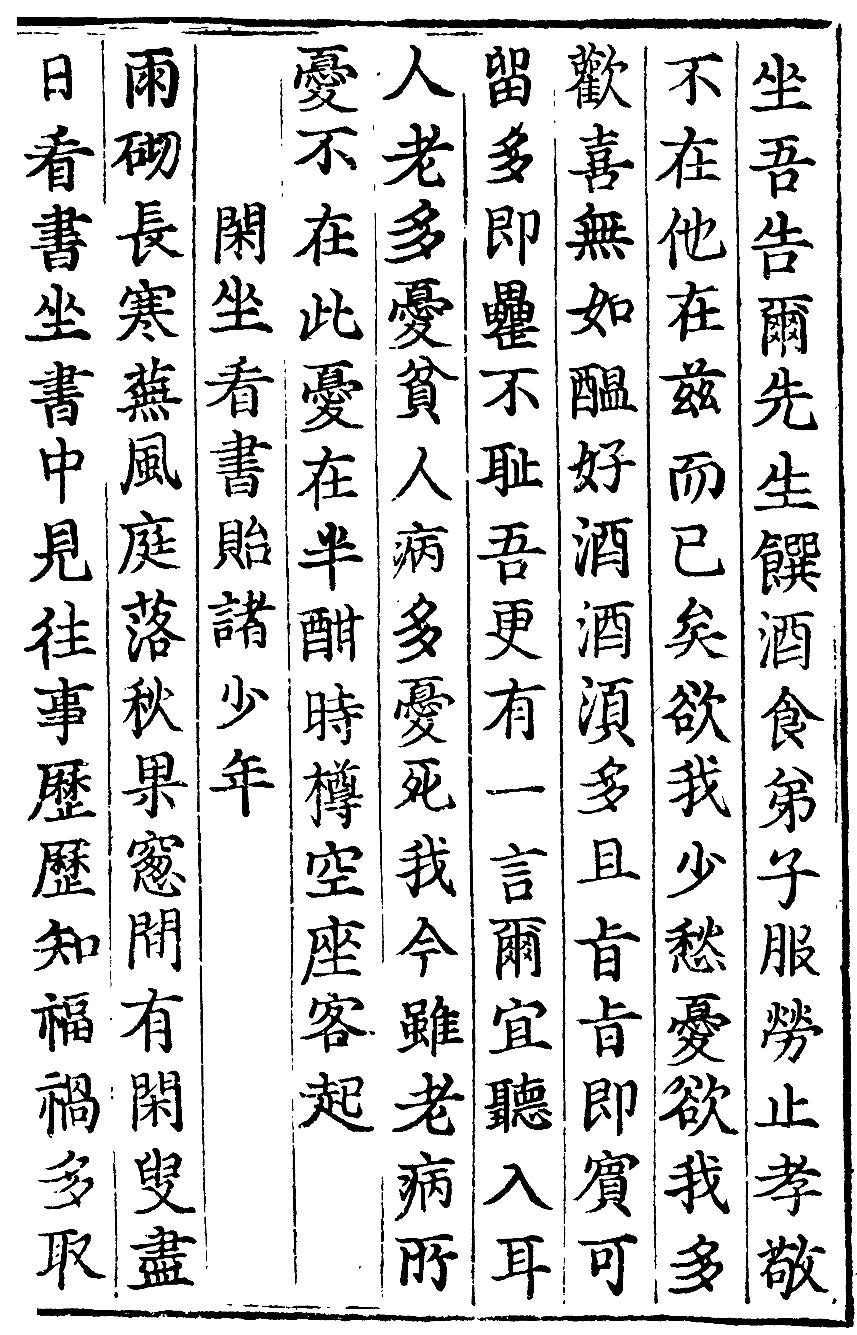 坐吾告爾先生饌酒食弟子服勞止孝敬
不在他在兹而已矣欲我少愁憂欲我多
歡喜無如醖好酒酒湏多且旨旨即賓可
留多即罍不耻吾更有一言爾宜聽入耳
人老多憂貧人病多憂死我今雖老病所
憂不在此憂在半酣時樽空座客起
閑坐看書貽諸少年
雨砌長寒蕪風庭落秋果窻間有閑叟盡
日看書坐書中見往事歷歷知福禍多取